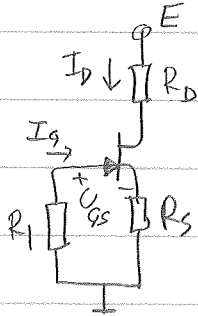 E
I_D
R_D
I_G
+
U_GS
-
R_1
R_S